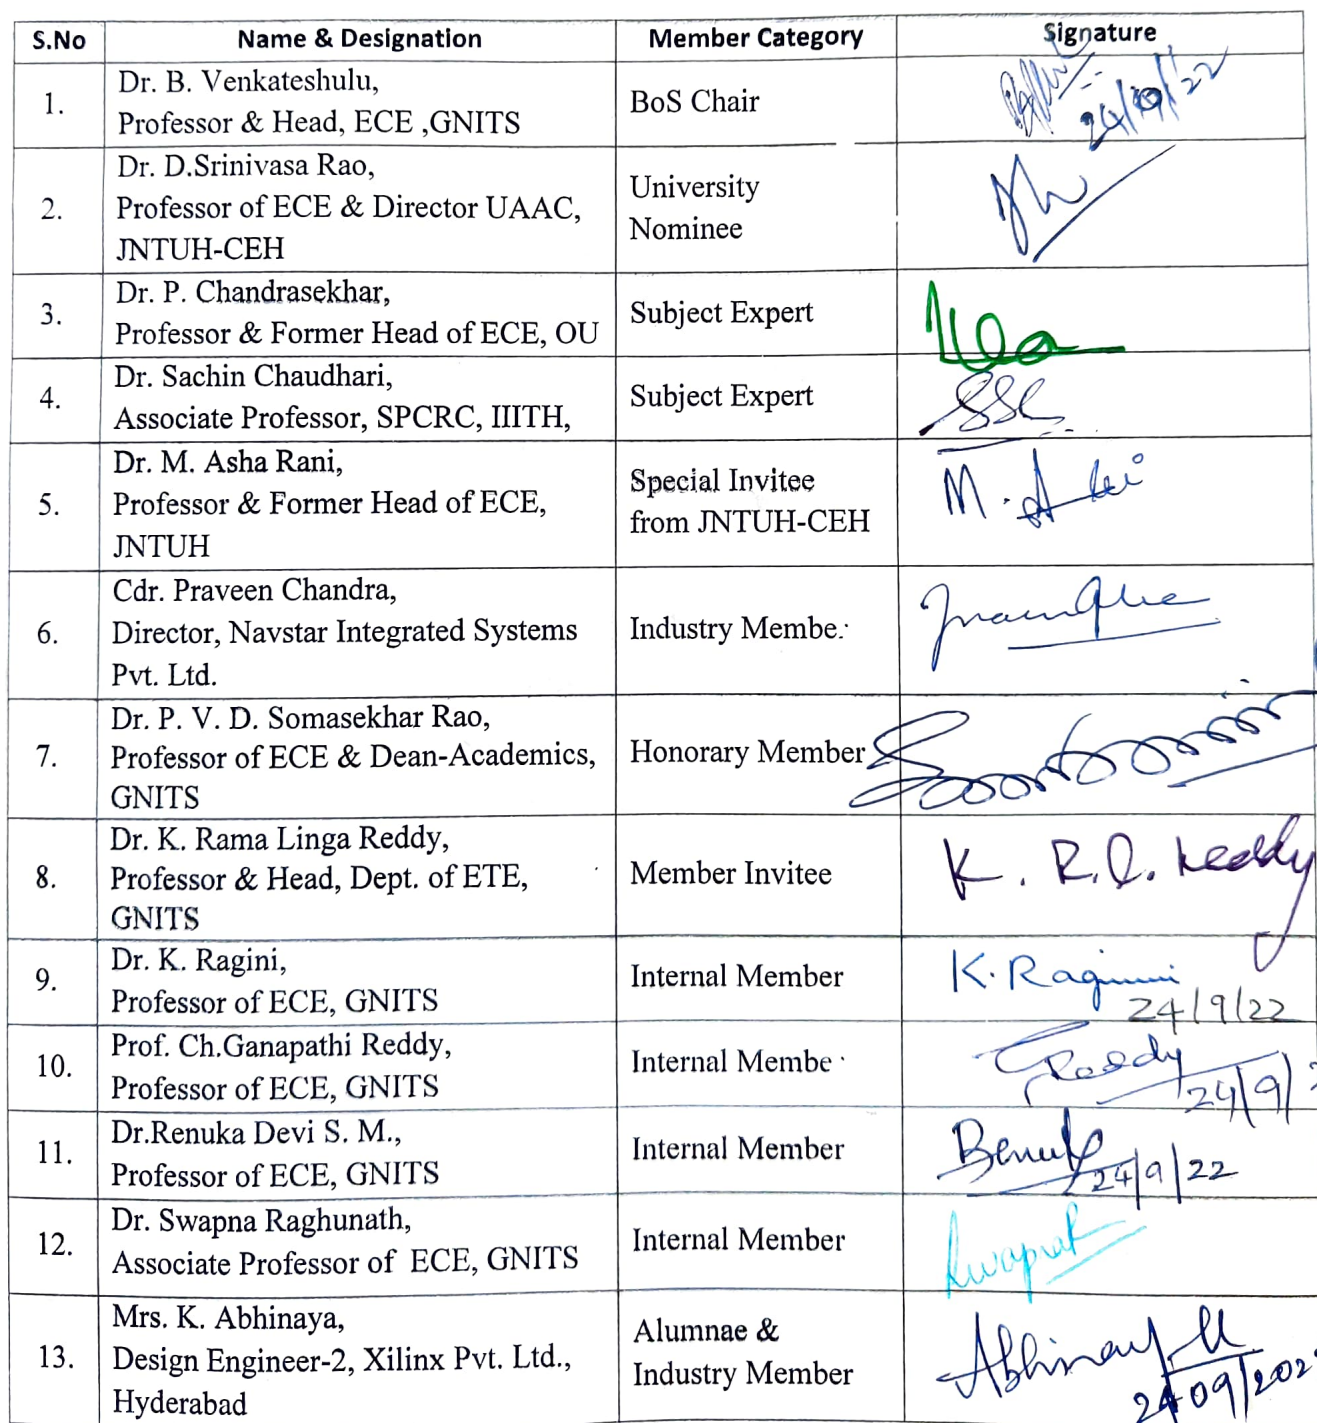 S.No Name & Designation Member Category Signature
1. Dr. B. Venkateshulu,
Professor & Head, ECE ,GNITS
BoS Chair
24/9/22
2. Dr. D.Srinivasa Rao,
Professor of ECE & Director UAAC,
JNTUH-CEH
University
Nominee
3. Dr. P. Chandrasekhar,
Professor & Former Head of ECE, OU
Subject Expert
4. Dr. Sachin Chaudhari,
Associate Professor, SPCRC, IIITH,
Subject Expert
5. Dr. M. Asha Rani,
Professor & Former Head of ECE,
JNTUH
Special Invitee
from JNTUH-CEH
6. Cdr. Praveen Chandra,
Director, Navstar Integrated Systems
Pvt. Ltd.
Industry Membe
7. Dr. P. V. D. Somasekhar Rao,
Professor of ECE & Dean-Academics,
GNITS
Honorary Member
8. Dr. K. Rama Linga Reddy,
Professor & Head, Dept. of ETE,
GNITS
Member Invitee
K. R.L. Reddy
9. Dr. K. Ragini,
Professor of ECE, GNITS
Internal Member
K. Ragini
24/9/22
10. Prof. Ch.Ganapathi Reddy,
Professor of ECE, GNITS
Internal Membe
Reddy
24/9/
11. Dr.Renuka Devi S. M.,
Professor of ECE, GNITS
Internal Member
24/9/22
12. Dr. Swapna Raghunath,
Associate Professor of ECE, GNITS
Internal Member
13. Mrs. K. Abhinaya,
Design Engineer-2, Xilinx Pvt. Ltd.,
Hyderabad
Alumnae &
Industry Member
24/09/202